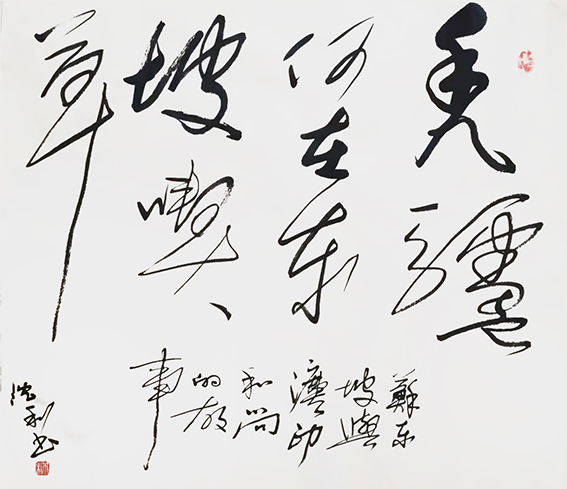 秃驢
何在东
坡喫
草
蘇东
坡與
印
和尚
的故
事
利书